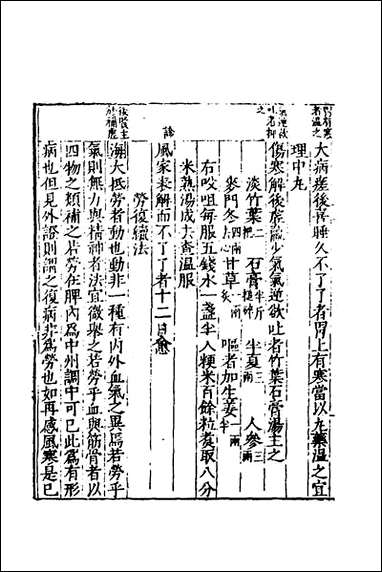 大病瘥後喜唾久不了了者胃上有寒當以丸藥溫之宜
理中丸
傷寒解後虛羸少氣氣逆欲吐者竹葉石膏湯主之
淡竹葉二把 石膏半斤 半夏 人參三
麥門冬去心 甘草炙 嘔者加生姜一兩半
右㕮咀每服五錢水一盞半入粳米百餘粒煑取八分
米熟湯成去查溫服
風家表解而不了了者十二日愈
勞復證法
海大抵勞者動也動非一種有內外血氣之異焉若勞乎
氣則無力與精神者法宜微舉之若勞乎血與筋骨者以
四物之類補之若勞在脾內為中州調中可已此為有形
病也但見外證則謂之復病非為勞也如再感風寒是已